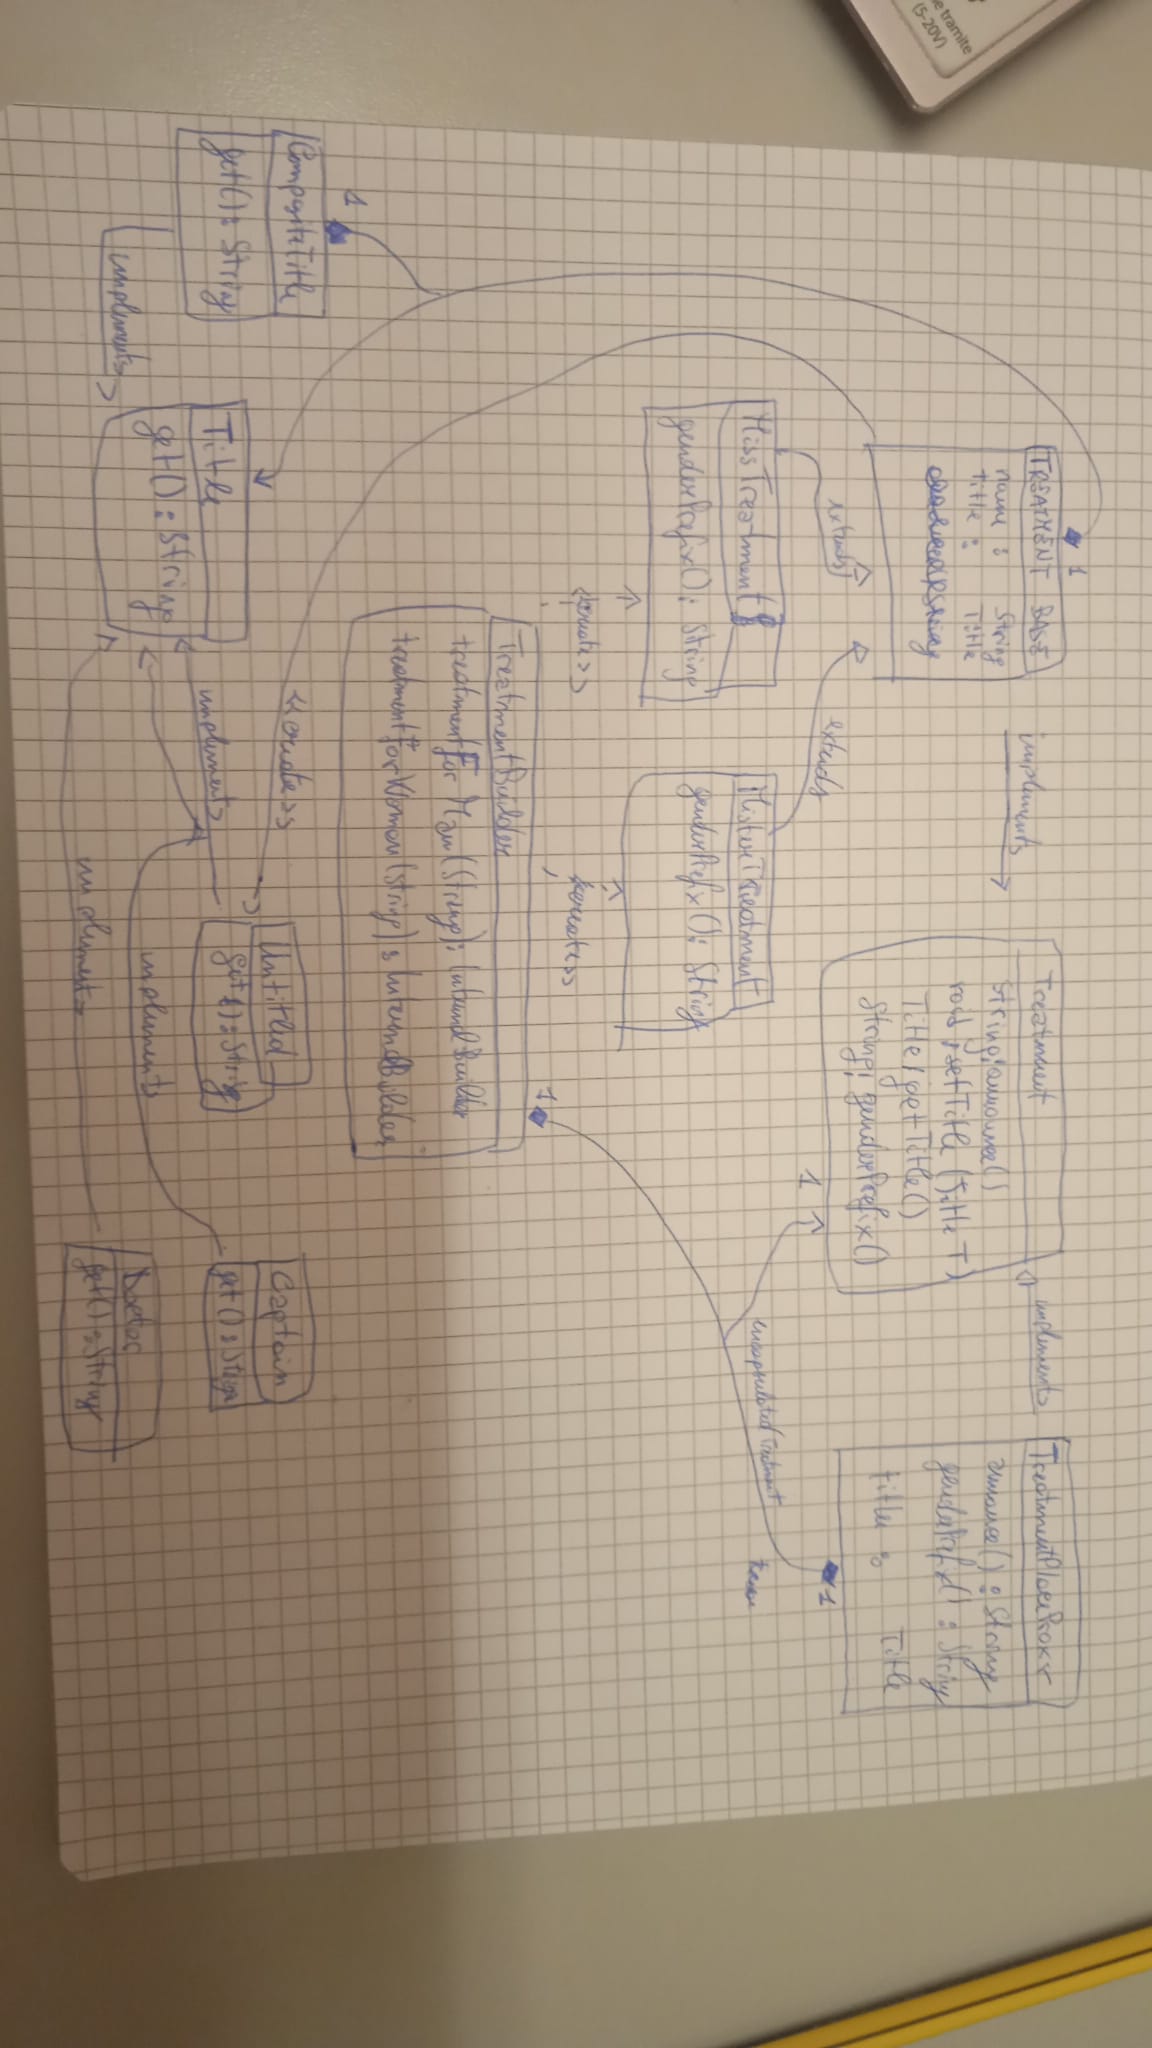 e tramite
(5-20V)
1
TREATMENT BASE
name : String
title : Title
implements
Treatment
String; announce()
void ; setTitle (Title T)
Title ; getTitle()
String; genderPrefix()
1
implements
announce() : String
genderPrefix() : String
title : Title
1
encapsulated Treatment
extends
extends
MissTreatment
genderPrefix() : String
MisterTreatment
genderPrefix() : String
<<create>>
<<create>>
1
TreatmentBuilder
treatmentForMan(String) : InternalBuilder
treatmentforWoman(String) : InternalBuilder
1
CompositeTitle
get() : String
implements
Title
get() : String
<<create>>
Untitled
get() : String
implements
Captain
get() : String
implements
Doctor
get() : String
implements